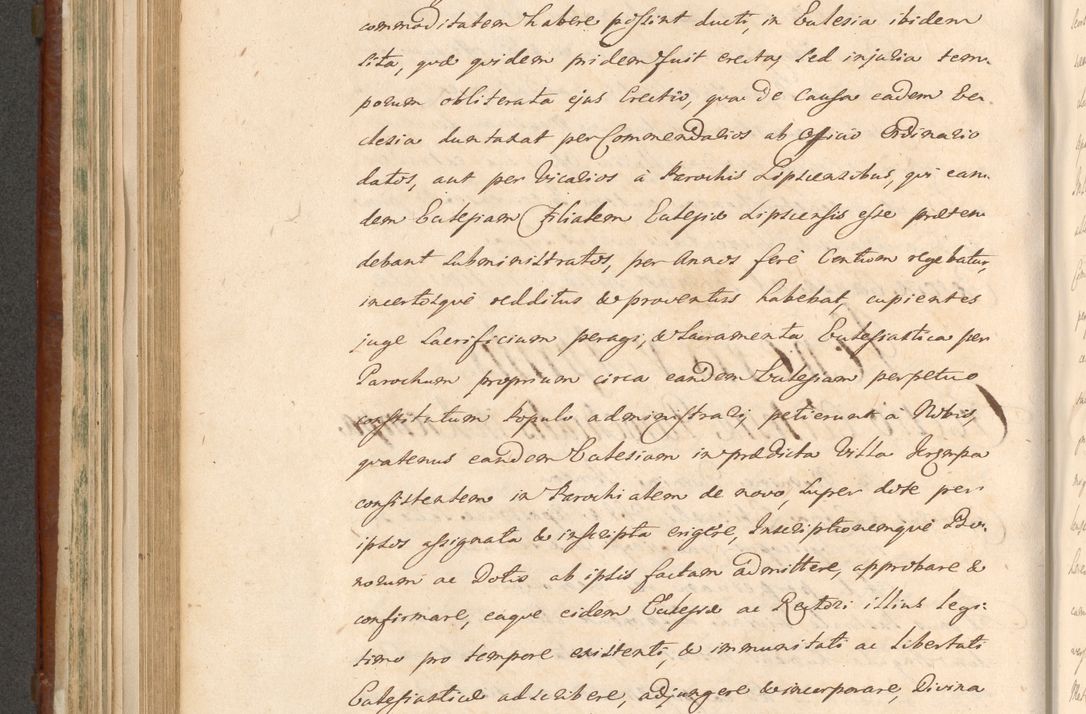 commoditatem habere possint ducti, in Eclesia ibidem
sita, quæ quidem pridem fuit erecta, sed injuria tem-
porum obliterata ejus Erectio, qua de Causa eadem Ec-
clesia duntaxat per Commendarios ab Officio Ordinario
datos, aut per Vicarios à Parochis Lipscensibus, qui ean-
dem Eclesiam Filialem Eclesiæ Lipscensis esse præten-
debant subministratos, per Annos ferè Centum regebatur,
incertosque redditus & proventus habebat, cupientes
juge Sacrificium peragi, & Sacramenta Eclesiastica per
Parochum proprium circa eandem Eclesiam perpetuo
constitutum populo administrari, petierunt à Nobis,
quatenus eandem Eclesiam in prædicta Villa
consistentem in Parochialem de novo, super dote per
ipsos assignata & inscripta erigere, Inscriptionemque Do-
norum ac Dotis ab ipsis factam admittere, approbare &
confirmare, eaque eidem Eclesiæ ac Rectori illius legi-
timo pro tempore existenti, & immunitati ac libertati
Eclesiasticæ adscribere, adjungere & incorporare, Divina